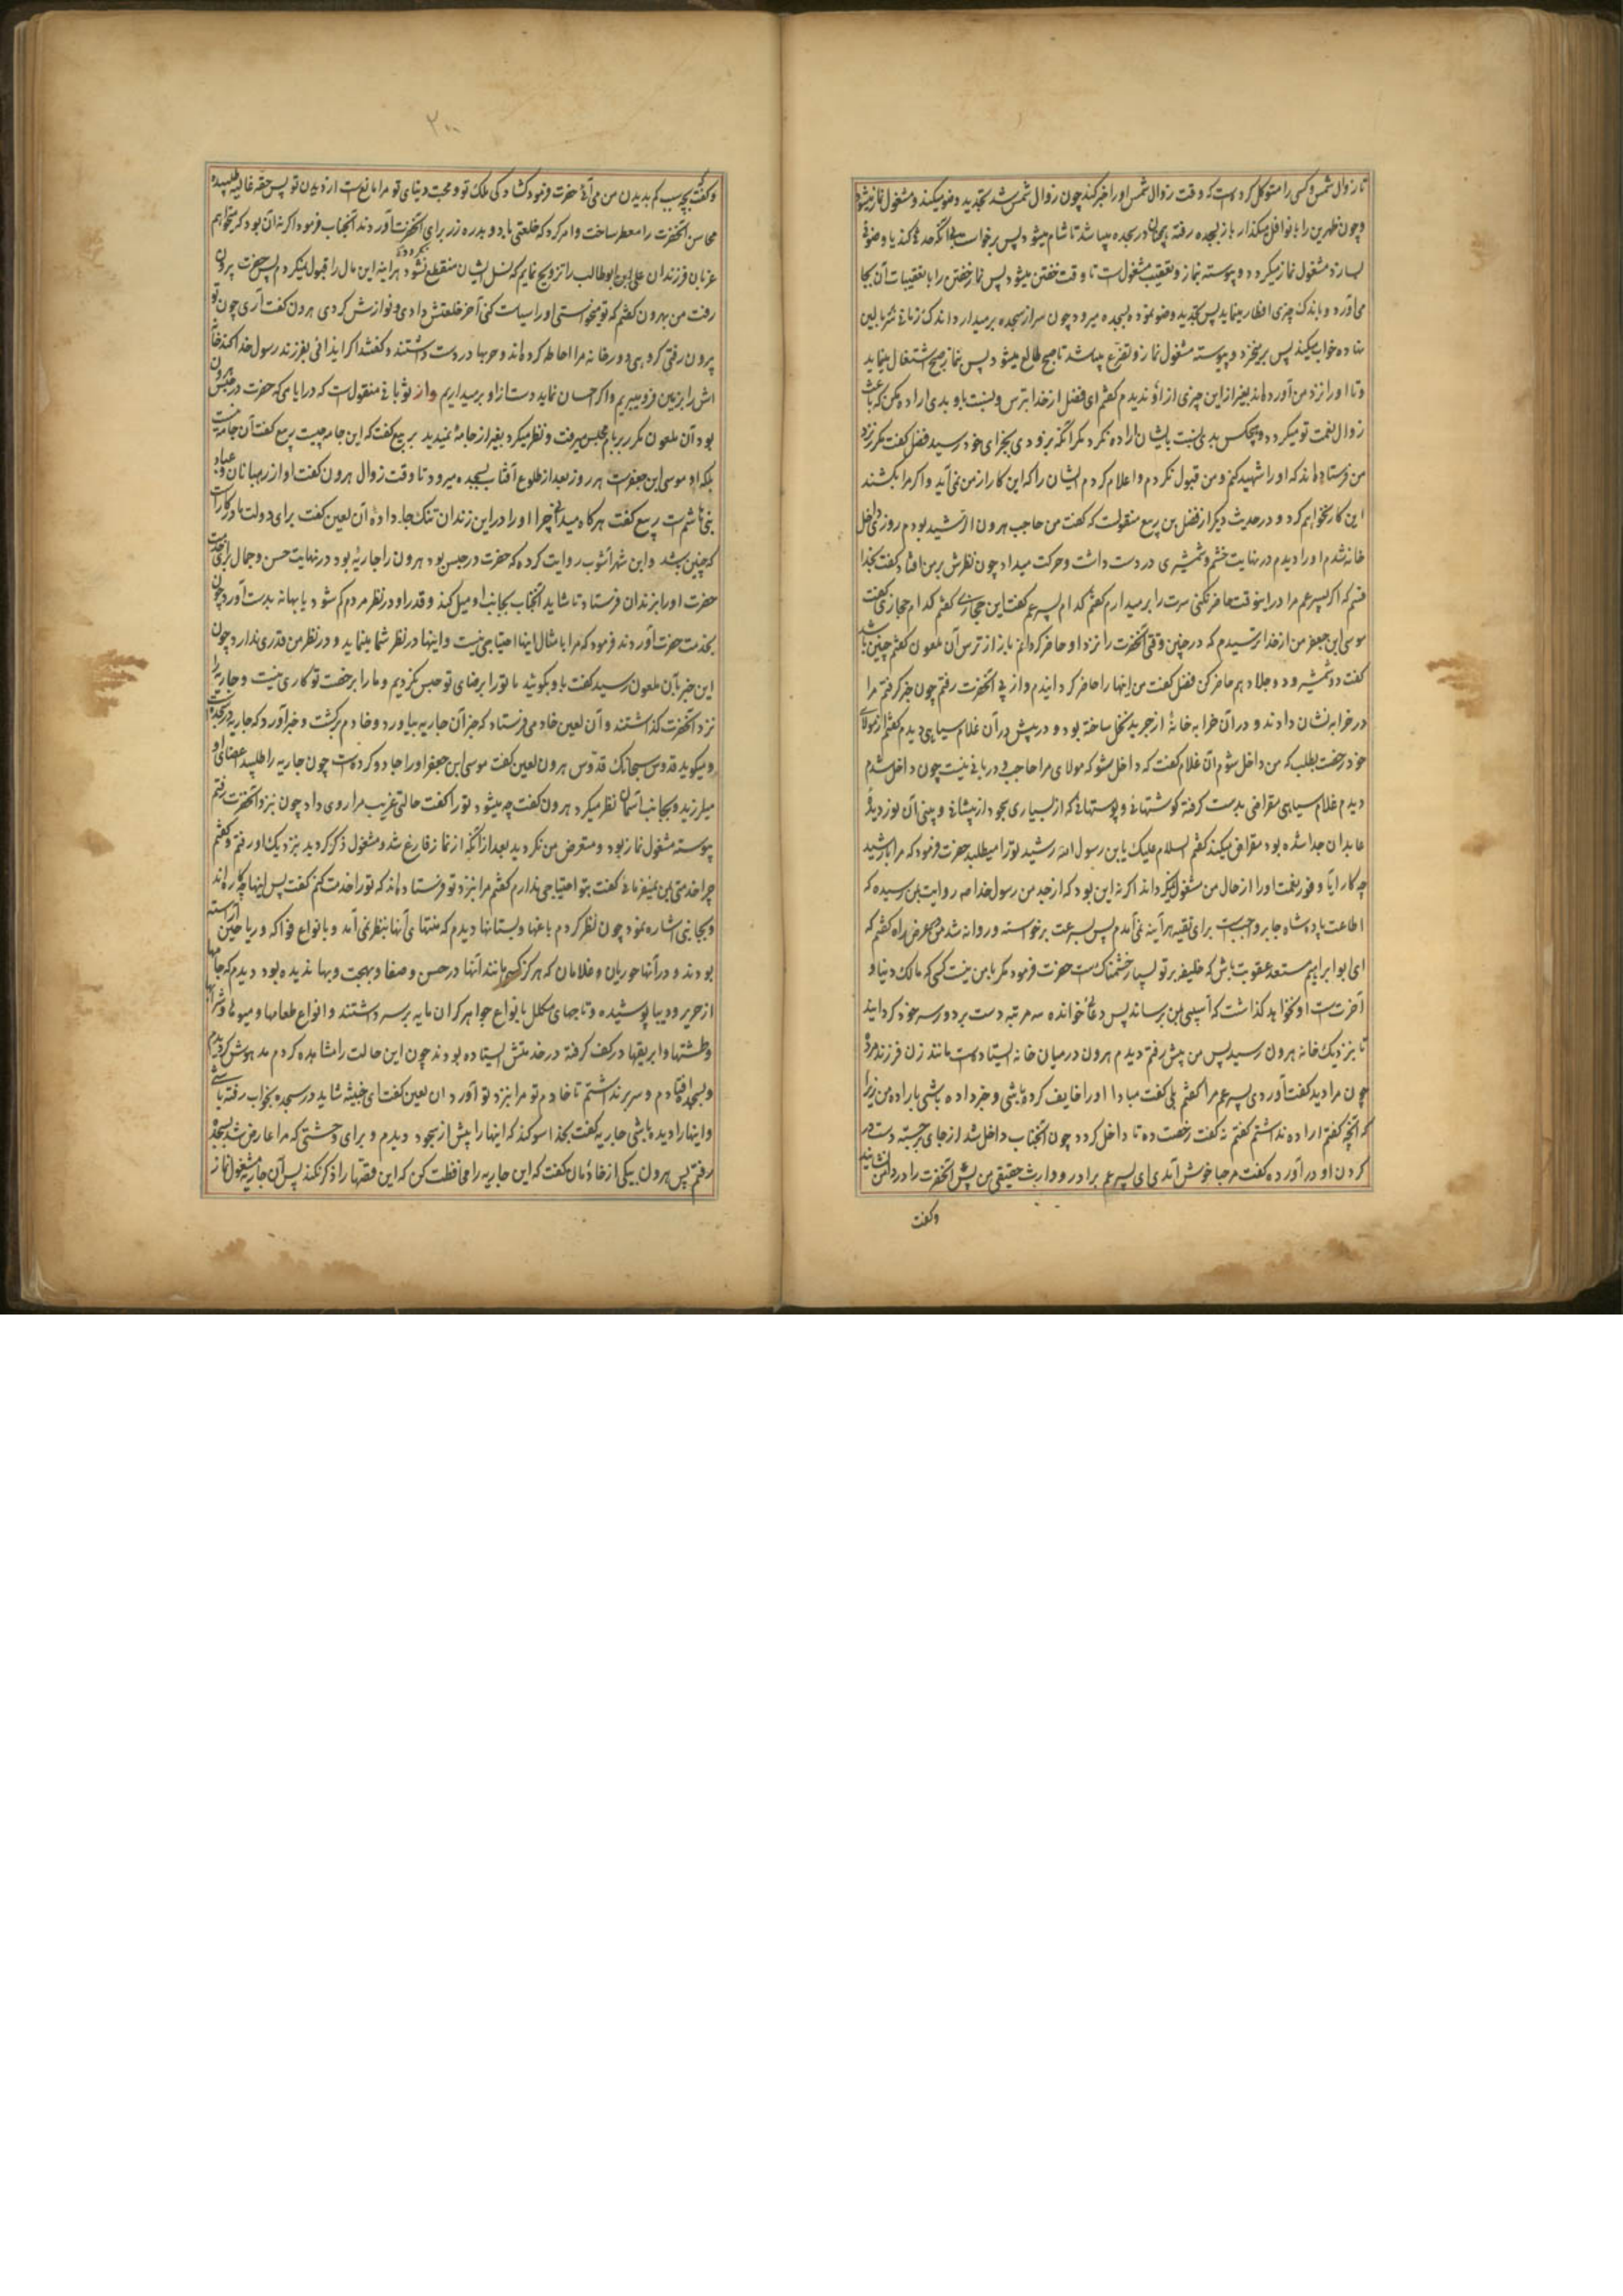 تا زوال شمس و کسی را متوکل کرده است که وقت زوال شمس او را خبر کند چون زوال شمس شد تجدید وضو میکند و مشغول نماز میشود
و چون ظهرین را با نوافل میگذارد باز بسجده رفته همچنان در سجده میباشد تا شام میشود پس برخواست بی آنکه حدثی کند یا وضوئی
بسازد مشغول نماز میگردد و پیوسته بنماز و تعقیب مشغول است تا وقت خفتن میشود پس نماز خفتن را با تعقیبات آن بجا
می‌آورد و باندک چیزی افطار مینماید پس تجدید وضو نموده بسجده میرود چون سر از سجده برمیدارد اندک زمانی
خواب میکند پس برمیخزد و پیوسته مشغول نماز و تضرع میباشد تا صبح طالع میشود پس بنماز صبح اشتغال مینماید
و تا او را نزد من آورده‌اند بغیر از این چیزی از او ندیدم گفتم ای فضل از خدا بترس و نسبت باو بدی اراده مکن که باعث
زوال نعمت تو میگردد و هیچکس بدی نسبت بایشان اراده نکرد مگر آنکه بزودی بجزای خود رسید فضل گفت مکرر نزد
من فرستاده‌اند که او را شهید کنم و من قبول نکردم و اعلام کردم ایشان را که این کار از من نمی‌آید و اگر مرا بکشند
این کار نخواهم کرد و در حدیث دیگر از فضل بن ربیع منقولست که گفت من حاجب هرون الرشید بودم روزی داخل
خانه شدم او را دیدم در نهایت خشم و شمشیری در دست داشت و حرکت میداد چون نظرش بر من افتاد گفت بخدا
قسم که اگر پسر عم مرا در اینوقت حاضر نکنی سرت را برمیدارم گفتم کدام پسر عم گفت این حجازی گفتم کدام حجازی گفت
موسی ابن جعفر من از خدا ترسیدم که در چنین وقتی آنحضرت را نزد او حاضر گردانم باز از ترس آن ملعون گفتم چنین باشد
گفت دو شمشیر و دو جلاد هم حاضر کن فضل گفت من اینها را حاضر گردانیدم و از پی آنحضرت رفتم چون خبر گرفتم مرا
در خرابه نشان دادند و در آن خرابه خانهٔ از جرید نخل ساخته بود و در پیش در آن غلام سیاهی دیدم گفتم از مولای
خود رخصت بطلب که من داخل شوم آن غلام گفت که داخل شو که مولای مرا حاجب و دربانی نیست چون داخل شدم
دیدم غلام سیاهی مقراضی بدست گرفته گوشتها و پوستهائی که از بسیاری سجود از پیشانی و بینی آن نور دیدهٔ
عابدان جدا شده بود مقراض میکند گفتم السلام علیک یابن رسول الله رشید تو را میطلبد حضرت فرمود که مرا با رشید
چه کار آیا وفور نعمت او را از حال من مشغول نمیگرداند اگر نه این بود که از جد من رسول خدا صه روایت بمن رسیده که
اطاعت پادشاه جابر واجبست برای تقیه هر آینه نمی‌آمدم پس بسرعت برخواسته و روانه شد من در عرض راه گفتم که
ای ابو ابراهیم مستعد عقوبت باش که خلیفه بر تو بسیار خشمناکست حضرت فرمود مگر با من نیست کسی که مالک دنیا و
آخرتست او نخواهد گذاشت که آسیبی بمن برساند پس دعائی خوانده سه مرتبه دست بر دور سر خود گردانید
تا بنزدیک خانه هرون رسید پس من پیش رفتم دیدم هرون در میان خانه ایستاده است مانند زن فرزند مرده
چون مرا دید گفت آوردی پسر عم مرا گفتم بلی گفت مبادا او را خایف کرده باشی و خبر داده باشی باراده من زیرا
که آنچه گفتم اراده نداشتم گفتم نه گفت رخصت ده تا داخل گردد چون آنجناب داخل شد از جای برجسته دست در
گردن او در آورده گفت مرحبا خوش آمدی ای پسر عم برادر و وارث حقیقی من پس آنحضرت را در دامن نشانید
و گفت
۲۰۰
و گفت بچه سبب کم بدیدن من می‌آئی حضرت فرمود گشادگی ملک تو و محبت دنیای تو مرا مانع است از دیدن تو پس حقه غالیه طلبیده
محاسن آنحضرت را معطر ساخت و امر کرد که خلعتی با دو بدره زر برای آنحضرت آوردند آنجناب فرمود اگر نه آن بود که میخواهم
عزبان فرزندان علی ابن ابوطالب را تزویج نمایم که نسل ایشان منقطع نشود هر اینه این مال را قبول نمیکردم پس حضرت بیرون
رفت من بهرون گفتم که تو میخواستی او را سیاست کنی آخر خلعتش دادی و نوازش کردی هرون گفت آری چون تو
بیرون رفتی گروهی دور خانه مرا احاطه کرده‌اند و حربها در دست داشتند و گفتند اگر ایذائی بفرزند رسول خدا کند خانه
اش را بزمین فرو میبریم و اگر احسان نماید دست از او برمیداریم و از ثوبانی منقولست که در ایامی که حضرت در حبس هرون
بود آن ملعون مکرر ببام مجلس میرفت و نظر میکرد بغیر از جامهٔ نمیدید بربیع گفت که این جامه چیست ربیع گفت آن جامه نیست
بلکه او موسی ابن جعفرست هر روز بعد از طلوع آفتاب بسجده میرود تا وقت زوال هرون گفت او از رهبانان و عباد
بنی هاشم است ربیع گفت هرگاه میدانی چرا او را در این زندان تنگ جا داده آن لعین گفت برای دولت ما در کار است
که چنین باشد و ابن شهرآشوب روایت کرده که حضرت در حبس بود هرون را جاریهٔ بود در نهایت حسن و جمال برای خدمت
حضرت او را بزندان فرستاد تا شاید آنجناب بجانب او میل کند و قدر او در نظر مردم کم شود یا بهانه بدست آورد چون
بخدمت حضرت آوردند فرمود که مرا با مثال اینها احتیاجی نیست و اینها در نظر شما مینماید و در نظر من قدری ندارد چون
این خبر بآن ملعون رسید گفت باو بگوئید ما تو را برضای تو حبس نکردیم و ما را برخصت تو کاری نیست و جاریه را
نزد آنحضرت گذاشتند و آن لعین خادمی فرستاد که خبر آن جاریه بیاورد و خادم برگشت و خبر آورد که جاریه در سجده است
و میگوید قدوس سبحانک قدوس هرون لعین گفت موسی ابن جعفر او را جادو کرده است چون جاریه را طلبید اعضای او
میلرزید و بجانب آسمان نظر میکرد هرون گفت چه میشود تو را گفت حالتی غریب مرا روی داد چون نزد آنحضرت رفتم
پیوسته مشغول نماز بود و متعرض من نگردید بعد از آنکه از نماز فارغ شد و مشغول ذکر گردید بنزدیک او رفتم و گفتم
چرا خدمتی بمن نمیفرمائی گفت بتو احتیاجی ندارم گفتم مرا بنزد تو فرستاده‌اند که تو را خدمت کنم گفت پس اینها چه کاره‌اند
و بجانبی اشاره نمود چون نظر کردم باغها و بستانها دیدم که منتهای آنها بنظر نمی‌آمد و بانواع فواکه و ریاحین آراسته
بودند و در آنها حوریان و غلامان که هرگز کسی مانند آنها در حسن و صفا و بهجت و بها ندیده بود دیدم که جامها
از حریر و دیبا پوشیده و تاجهای مکلل بانواع جواهر گران مایه بر سر داشتند و انواع طعامها و میوها و شرابها
و طشتها و ابریقها در کف گرفته در خدمتش ایستاده بودند چون این حالت را مشاهده کردم مدهوش گردیدم
و بسجده افتادم و سر برنداشتم تا خادم تو مرا بنزد تو آورد آن لعین گفت ای خبیثه شاید در سجده بخواب رفته باشی
و اینها را دیده باشی جاریه گفت بخدا سوگند که اینها را پیش از سجود دیدم و برای وحشتی که مرا عارض شد بسجده
رفتم پس هرون بیکی از خادمان گفت که این جاریه را محافظت کن که این قصها را ذکر نکند پس آن جاریه مشغول نماز